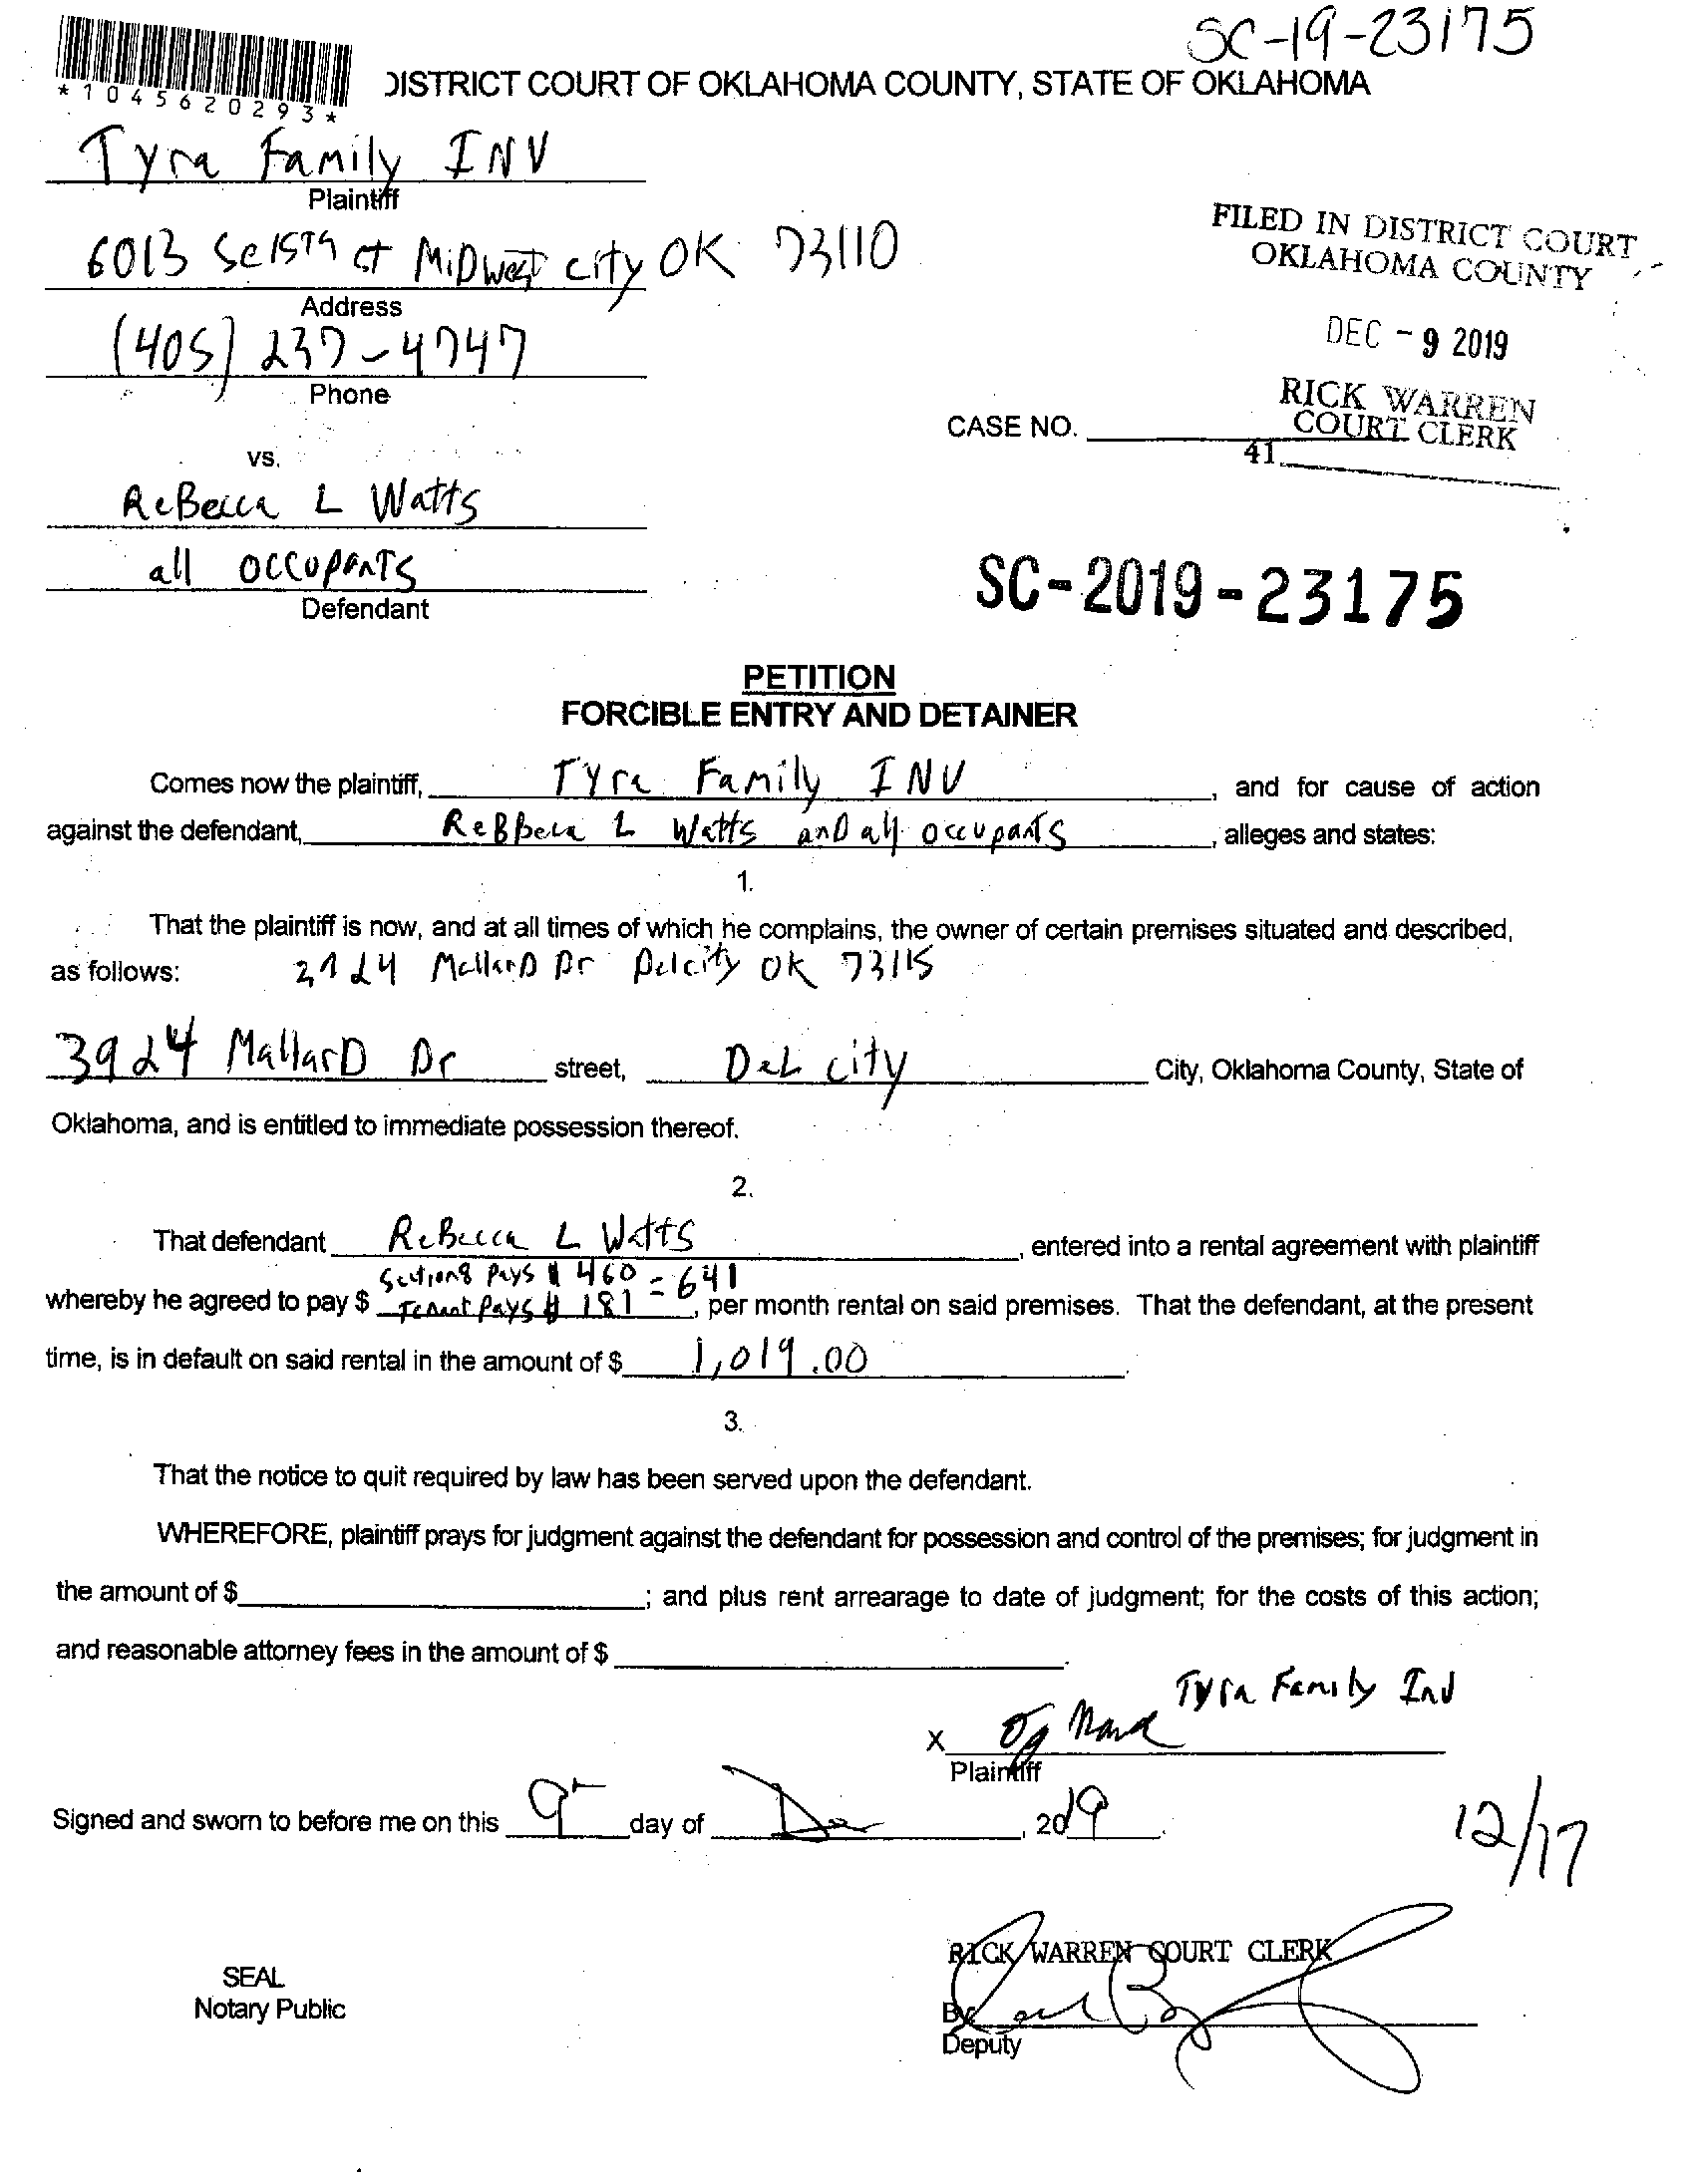 SC-19-23175
*1045620293*
DISTRICT COURT OF OKLAHOMA COUNTY, STATE OF OKLAHOMA
Tyra Family INV
Plaintiff
6013 Se 15Th ct MiDwest city OK 73110
Address
(405) 237-4747
Phone
FILED IN DISTRICT COURT
OKLAHOMA COUNTY
DEC - 9 2019
RICK WARREN
COURT CLERK
CASE NO.
41
vs.
ReBecca L Watts
all occupanTs
Defendant
SC-2019-23175
PETITION
FORCIBLE ENTRY AND DETAINER
Comes now the plaintiff, Tyra Family INV, and for cause of action
against the defendant, ReBbeca L Watts anD all occupants, alleges and states:
1.
That the plaintiff is now, and at all times of which he complains, the owner of certain premises situated and described,
as follows: MallarD Dr Delcity OK 73115
3924 MallarD Dr street, DeL city City, Oklahoma County, State of
Oklahoma, and is entitled to immediate possession thereof.
2.
That defendant ReBecca L Watts, entered into a rental agreement with plaintiff
Section8 Pays $ 460 = 641
whereby he agreed to pay $ Tenant Pays $ 181, per month rental on said premises. That the defendant, at the present
time, is in default on said rental in the amount of $ 1,019.00.
3.
That the notice to quit required by law has been served upon the defendant.
WHEREFORE, plaintiff prays for judgment against the defendant for possession and control of the premises; for judgment in
the amount of $; and plus rent arrearage to date of judgment; for the costs of this action;
and reasonable attorney fees in the amount of $.
Tyra Family Inv
X
Plaintiff
Signed and sworn to before me on this 9th day of Dec, 2019
12/17
RICK WARREN COURT CLERK
SEAL
Notary Public
By
Deputy